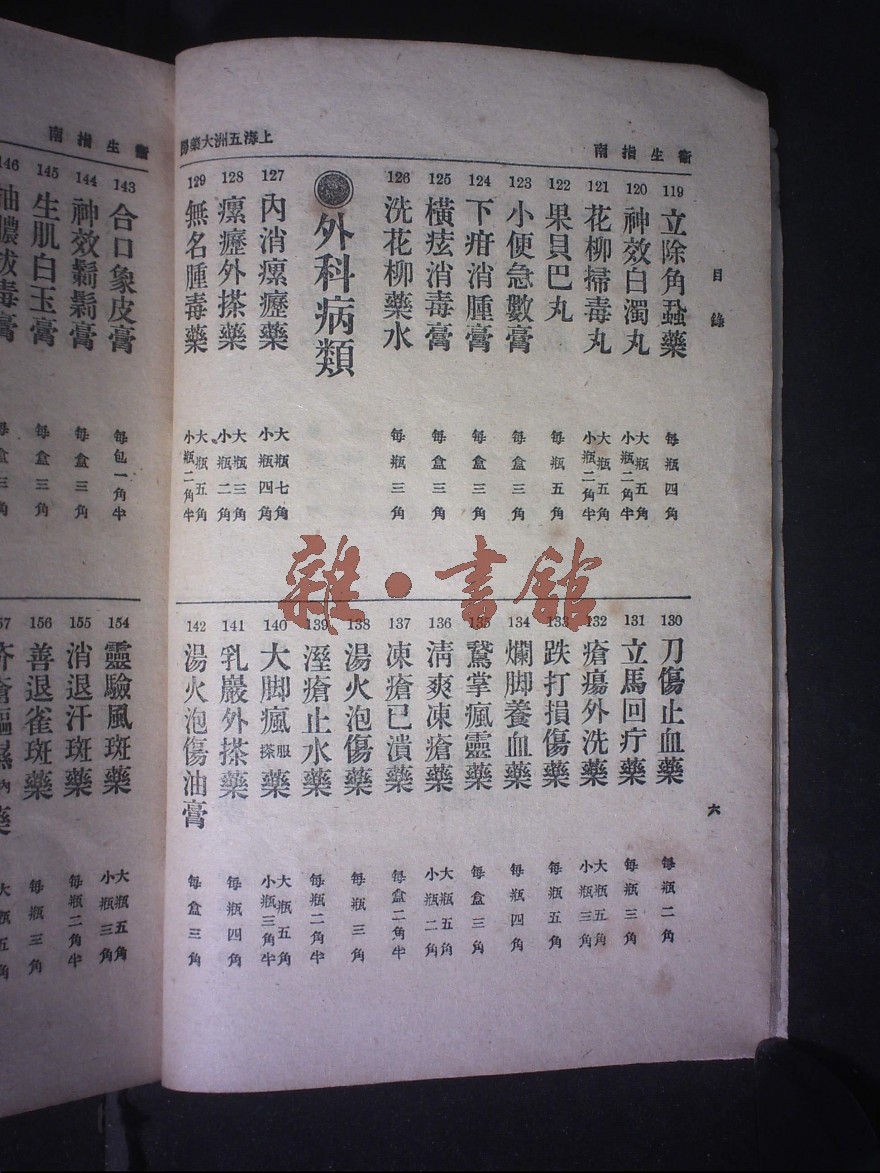 衞生指南
上海五洲大藥房
目錄
119 立除角蝨藥 每瓶四角
120 神效白濁丸 大瓶五角 小瓶二角半
121 花柳掃毒丸 大瓶五角 小瓶二角半
122 果貝巴丸 每瓶五角
123 小便急數膏 每盒三角
124 下疳消腫膏 每盒三角
125 橫痃消毒膏 每盒三角
126 洗花柳藥水 每瓶三角
外科病類
127 內消瘰癧藥 大瓶七角 小瓶四角
128 瘰癧外搽藥 大瓶三角 小瓶二角
129 無名腫毒藥 大瓶五角 小瓶二角半
130 刀傷止血藥 每瓶二角
131 立馬回疔藥 每瓶三角
132 瘡瘍外洗藥 大瓶五角 小瓶三角
133 跌打損傷藥 每瓶五角
134 爛脚養血藥 每瓶四角
135 鵞掌瘋靈藥 每盒三角
136 淸爽凍瘡藥 大瓶五角 小瓶二角
137 凍瘡已潰藥 每盒二角半
138 湯火泡傷藥 每瓶三角
139 溼瘡止水藥 每瓶二角半
140 大脚瘋服搽藥 大瓶五角 小瓶三角半
141 乳巖外搽藥 每瓶四角
142 湯火泡傷油膏 每盒三角
六
衞生指南
143 合口象皮膏 每包一角半
144 神效鬎鬁膏 每盒三角
145 生肌白玉膏 每盒三角
146 拔毒膏 每盒三角
154 靈驗風斑藥 大瓶五角 小瓶三角
155 消退汗斑藥 每瓶二角半
156 善退雀斑藥 每瓶三角
大瓶五角
雜·書館